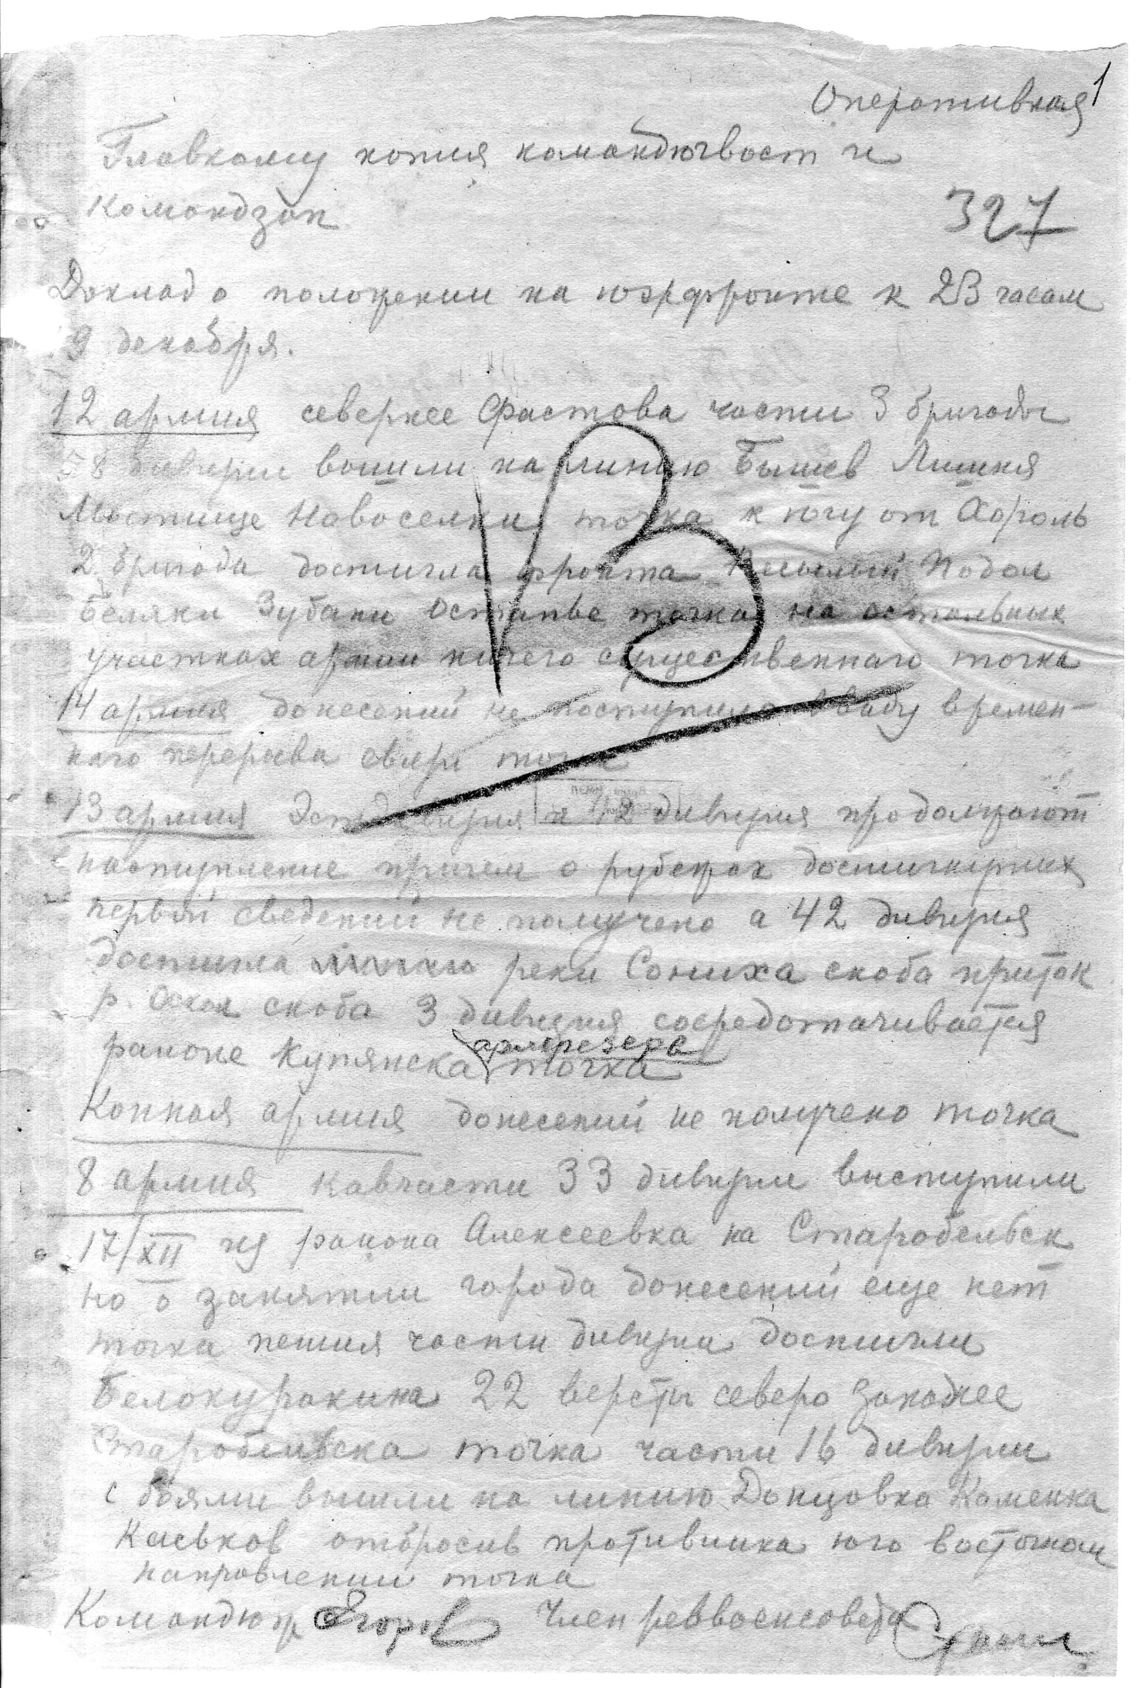 Оперативная 1
Главкому копия командючвост и
командзап
327
Доклад о положении на южфронте к 23 часам
9 декабря.
12 армия севернее Фастова части 3 бригады
58 дивизии вышли на линию Бышев Лишня
Мостище Новоселки точка к югу от Хороль
2 бригада достигла фронта Веселый Подол
Беляки Зубани Остапье точка на остальных
участках армии ничего существенного точка
14 армия донесений не поступило ввиду времен-
ного перерыва связи точка
13 армия Эстдивизия и 12 дивизия продолжают
наступление причем о рубежах достигнутых
первой сведений не получено а 42 дивизия
достигла линию реки Сониха скоба приток
р. Оскол скоба 3 дивизия сосредотачивается
армрезерв
районе Купянска точка
Конная армия донесений не получено точка
8 армия кавчасти 33 дивизии выступили
17/XII из района Алексеевка на Старобельск
но о занятии города донесений еще нет
точка пешия части дивизиа достигли
Белокуракина 22 версты северо западнее
Старобельска точка части 16 дивизии
с боями вышли на линию Донцовка Каменка
Каськов отбросив противника юго восточном
направлении точка
Командюж Егоров Член реввоенсовета